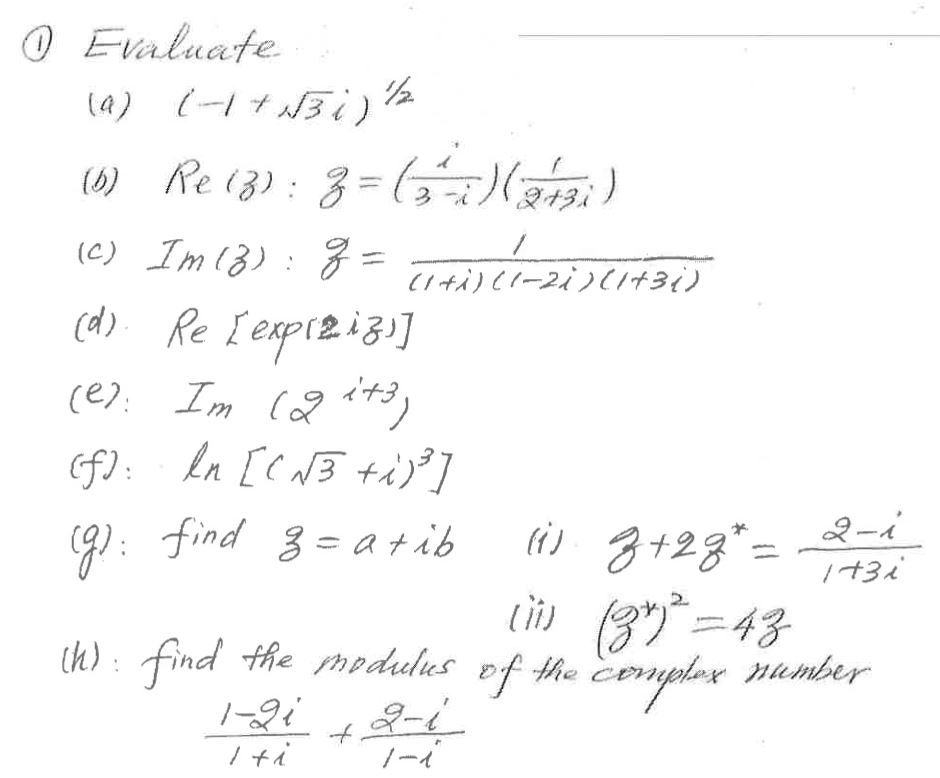 ① Evaluate
(a) (-1 + √3 i)^{1/2}
(b) Re(z) : z = (i/(3-i))(1/(2+3i))
(c) Im(z) : z = 1/((1+i)(1-2i)(1+3i))
(d). Re [exp(2iz)]
(e): Im (2^{i+3})
(f): ln [(√3 + i)^3]
(g): find z = a + ib (i) z + 2z* = (2-i)/(1+3i)
(ii) (z*)^2 = 4z
(h): find the modulus of the complex number
(1-2i)/(1+i) + (2-i)/(1-i)